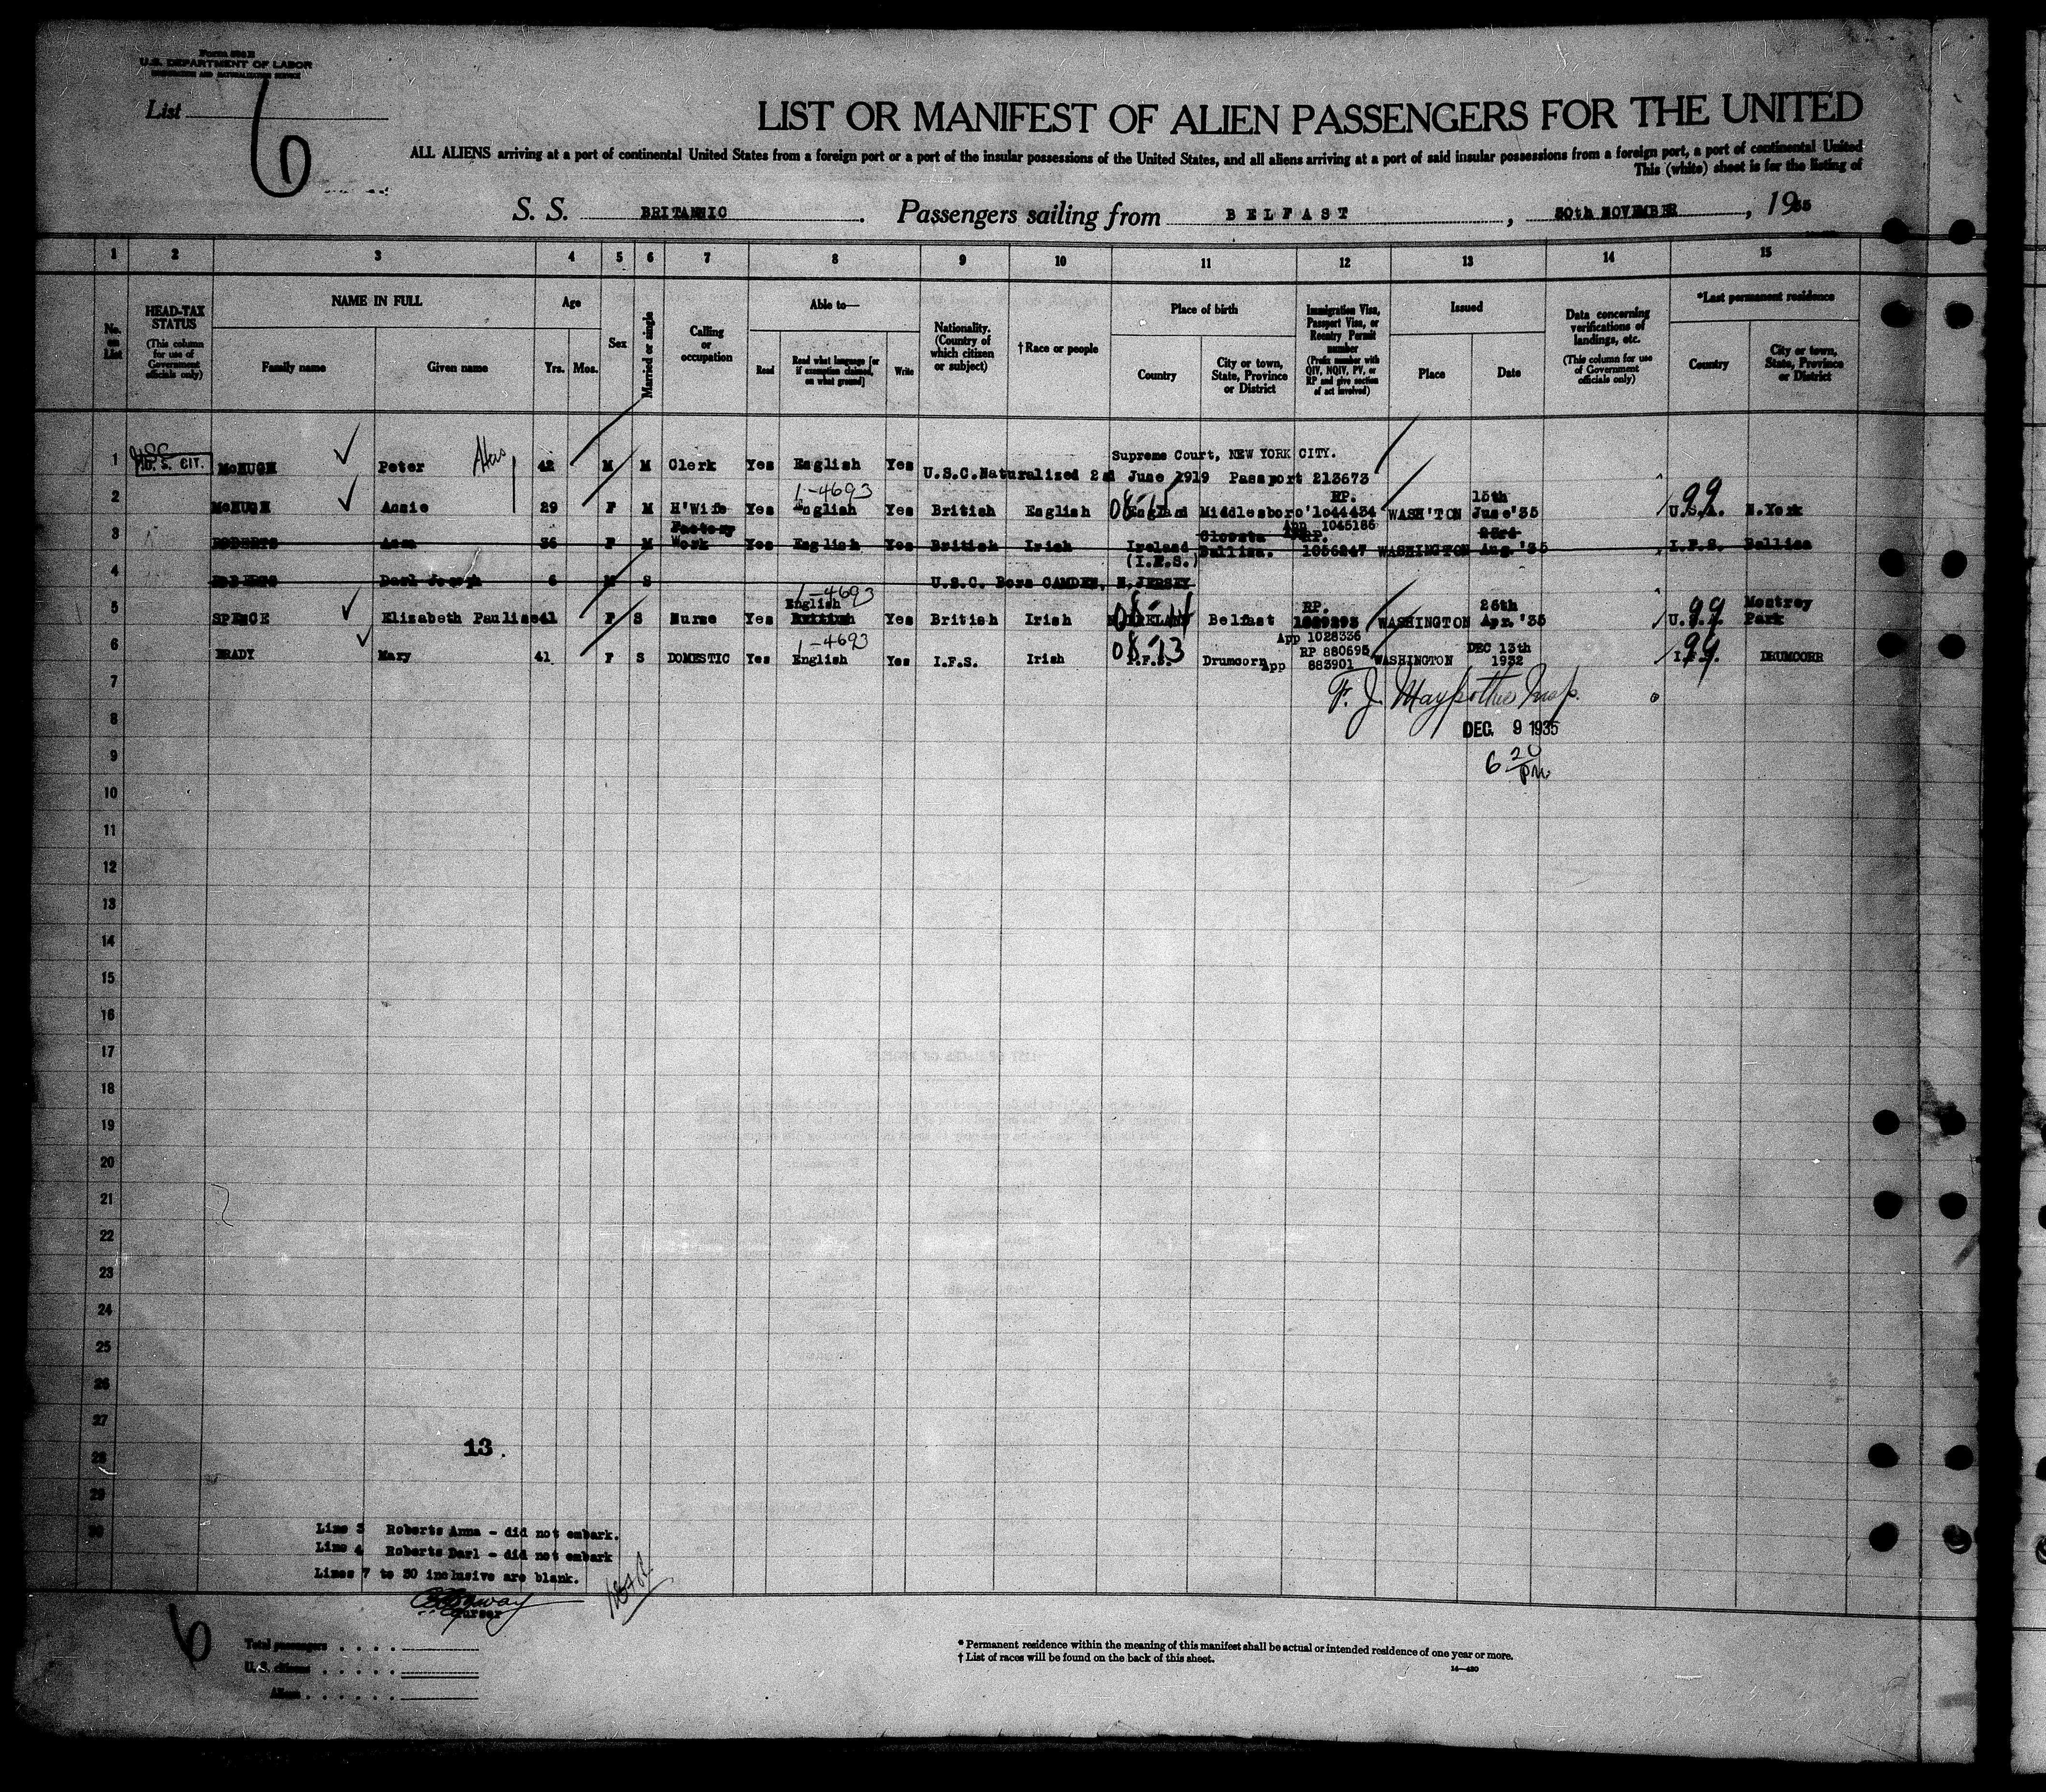 Form 500 B
U.S. DEPARTMENT OF LABOR
IMMIGRATION AND NATURALIZATION SERVICE
List 6
LIST OR MANIFEST OF ALIEN PASSENGERS FOR THE UNITED
ALL ALIENS arriving at a port of continental United States from a foreign port or a port of the insular possessions of the United States, and all aliens arriving at a port of said insular possessions from a foreign port, a port of continental United
This (white) sheet is for the listing of
S. S. BRITANNIC. Passengers sailing from BELFAST, 30th NOVEMBER, 1935
1 2 3 4 5 6 7 8 9 10 11 12 13 14 15
No. on List
HEAD-TAX STATUS (This column for use of Government officials only)
NAME IN FULL Family name Given name
Age Yrs. Mos.
Sex
Married or single
Calling or occupation
Able to— Read Read what language [or if exemption claimed, on what ground] Write
Nationality. (Country of which citizen or subject)
† Race or people
Place of birth Country City or town, State, Province or District
Immigration Visa, Passport Visa, or Reentry Permit number (Prefix number with QIV, NQIV, PV, or RP and give section of act involved)
Issued Place Date
Data concerning verifications of landings, etc. (This column for use of Government officials only)
*Last permanent residence Country City or town, State, Province or District
Supreme Court, NEW YORK CITY.
1 USC U.S. CIT. McHUGH Peter 42 M M Clerk Yes English Yes U.S.C. Naturalized 2nd June 1919 Passport 213673
1-4693 RP. 15th 99
2 McHUGH Annie 29 F M H'Wife Yes English Yes British English England Middlesboro' 1044434 WASH'TON June '35 U.S.A. N.York
App 1045186
Factory Clooata RP. 23rd
3 ROBERTS Anna 36 F M Work Yes English Yes British Irish Ireland Ballina. 1056247 WASHINGTON Aug. '35 I.F.S. Ballina
(I.F.S.)
4 ROBERTS Darl Joseph 6 M S U.S.C. Born CAMDEN, N.JERSEY
1-4693
English RP. 26th 99 Montrey
5 SPENCE Elizabeth Pauline 41 F S Nurse Yes British Yes British Irish N.IRELAND Belfast 1029293 WASHINGTON Apr. '35 U.S.A. Park
App 1028336
1-4693 08-13 RP 880695 DEC 13th 99
6 BRADY Mary 41 F S DOMESTIC Yes English Yes I.F.S. Irish I.F.S. Drumcorn App 883901 WASHINGTON 1932 I.F.S. DRUMCORR
7
F. J. Insp.
8 DEC. 9 1935
9 6 20 pm
10
11
12
13
14
15
16
17
18
19
20
21
22
23
24
25
26
27
28 13.
29
30
Line 3 Roberts Anna - did not embark.
Line 4 Roberts Darl - did not embark
Lines 7 to 30 inclusive are blank.
Purser
6
Total passengers
U. S. citizens
Aliens
* Permanent residence within the meaning of this manifest shall be actual or intended residence of one year or more.
† List of races will be found on the back of this sheet.
14—430